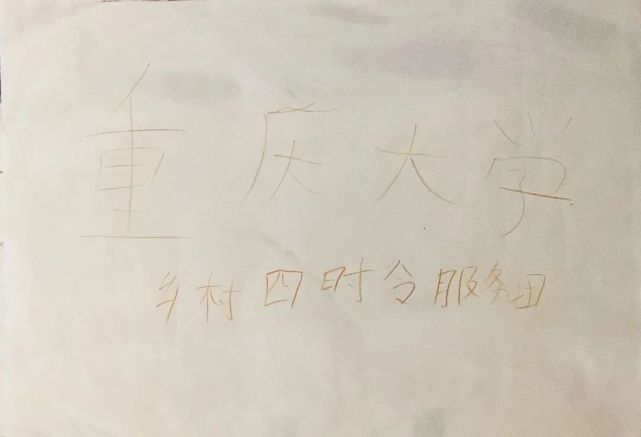 重庆大学
乡村四时令服务团